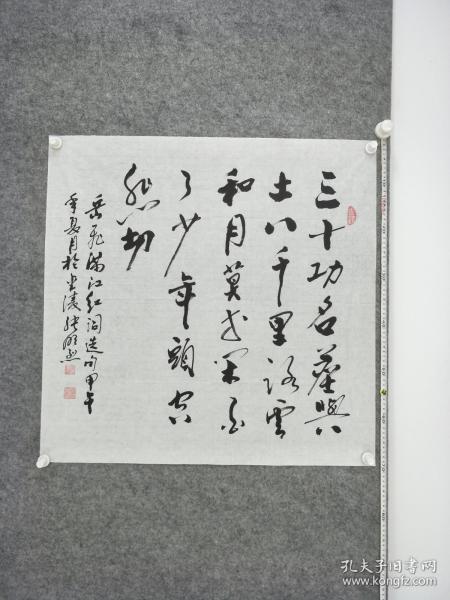 三十功名塵與
土八千里路雲
和月莫等閑白
了少年頭空
悲切
岳飛滿江红词选句甲午
年夏月於金陵
孔夫子旧书网
www.kongfz.com